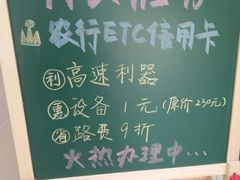 农行ETC信用卡
利 高速利器
惠 设备1元(原价230元)
省 路费9折
火热办理中...